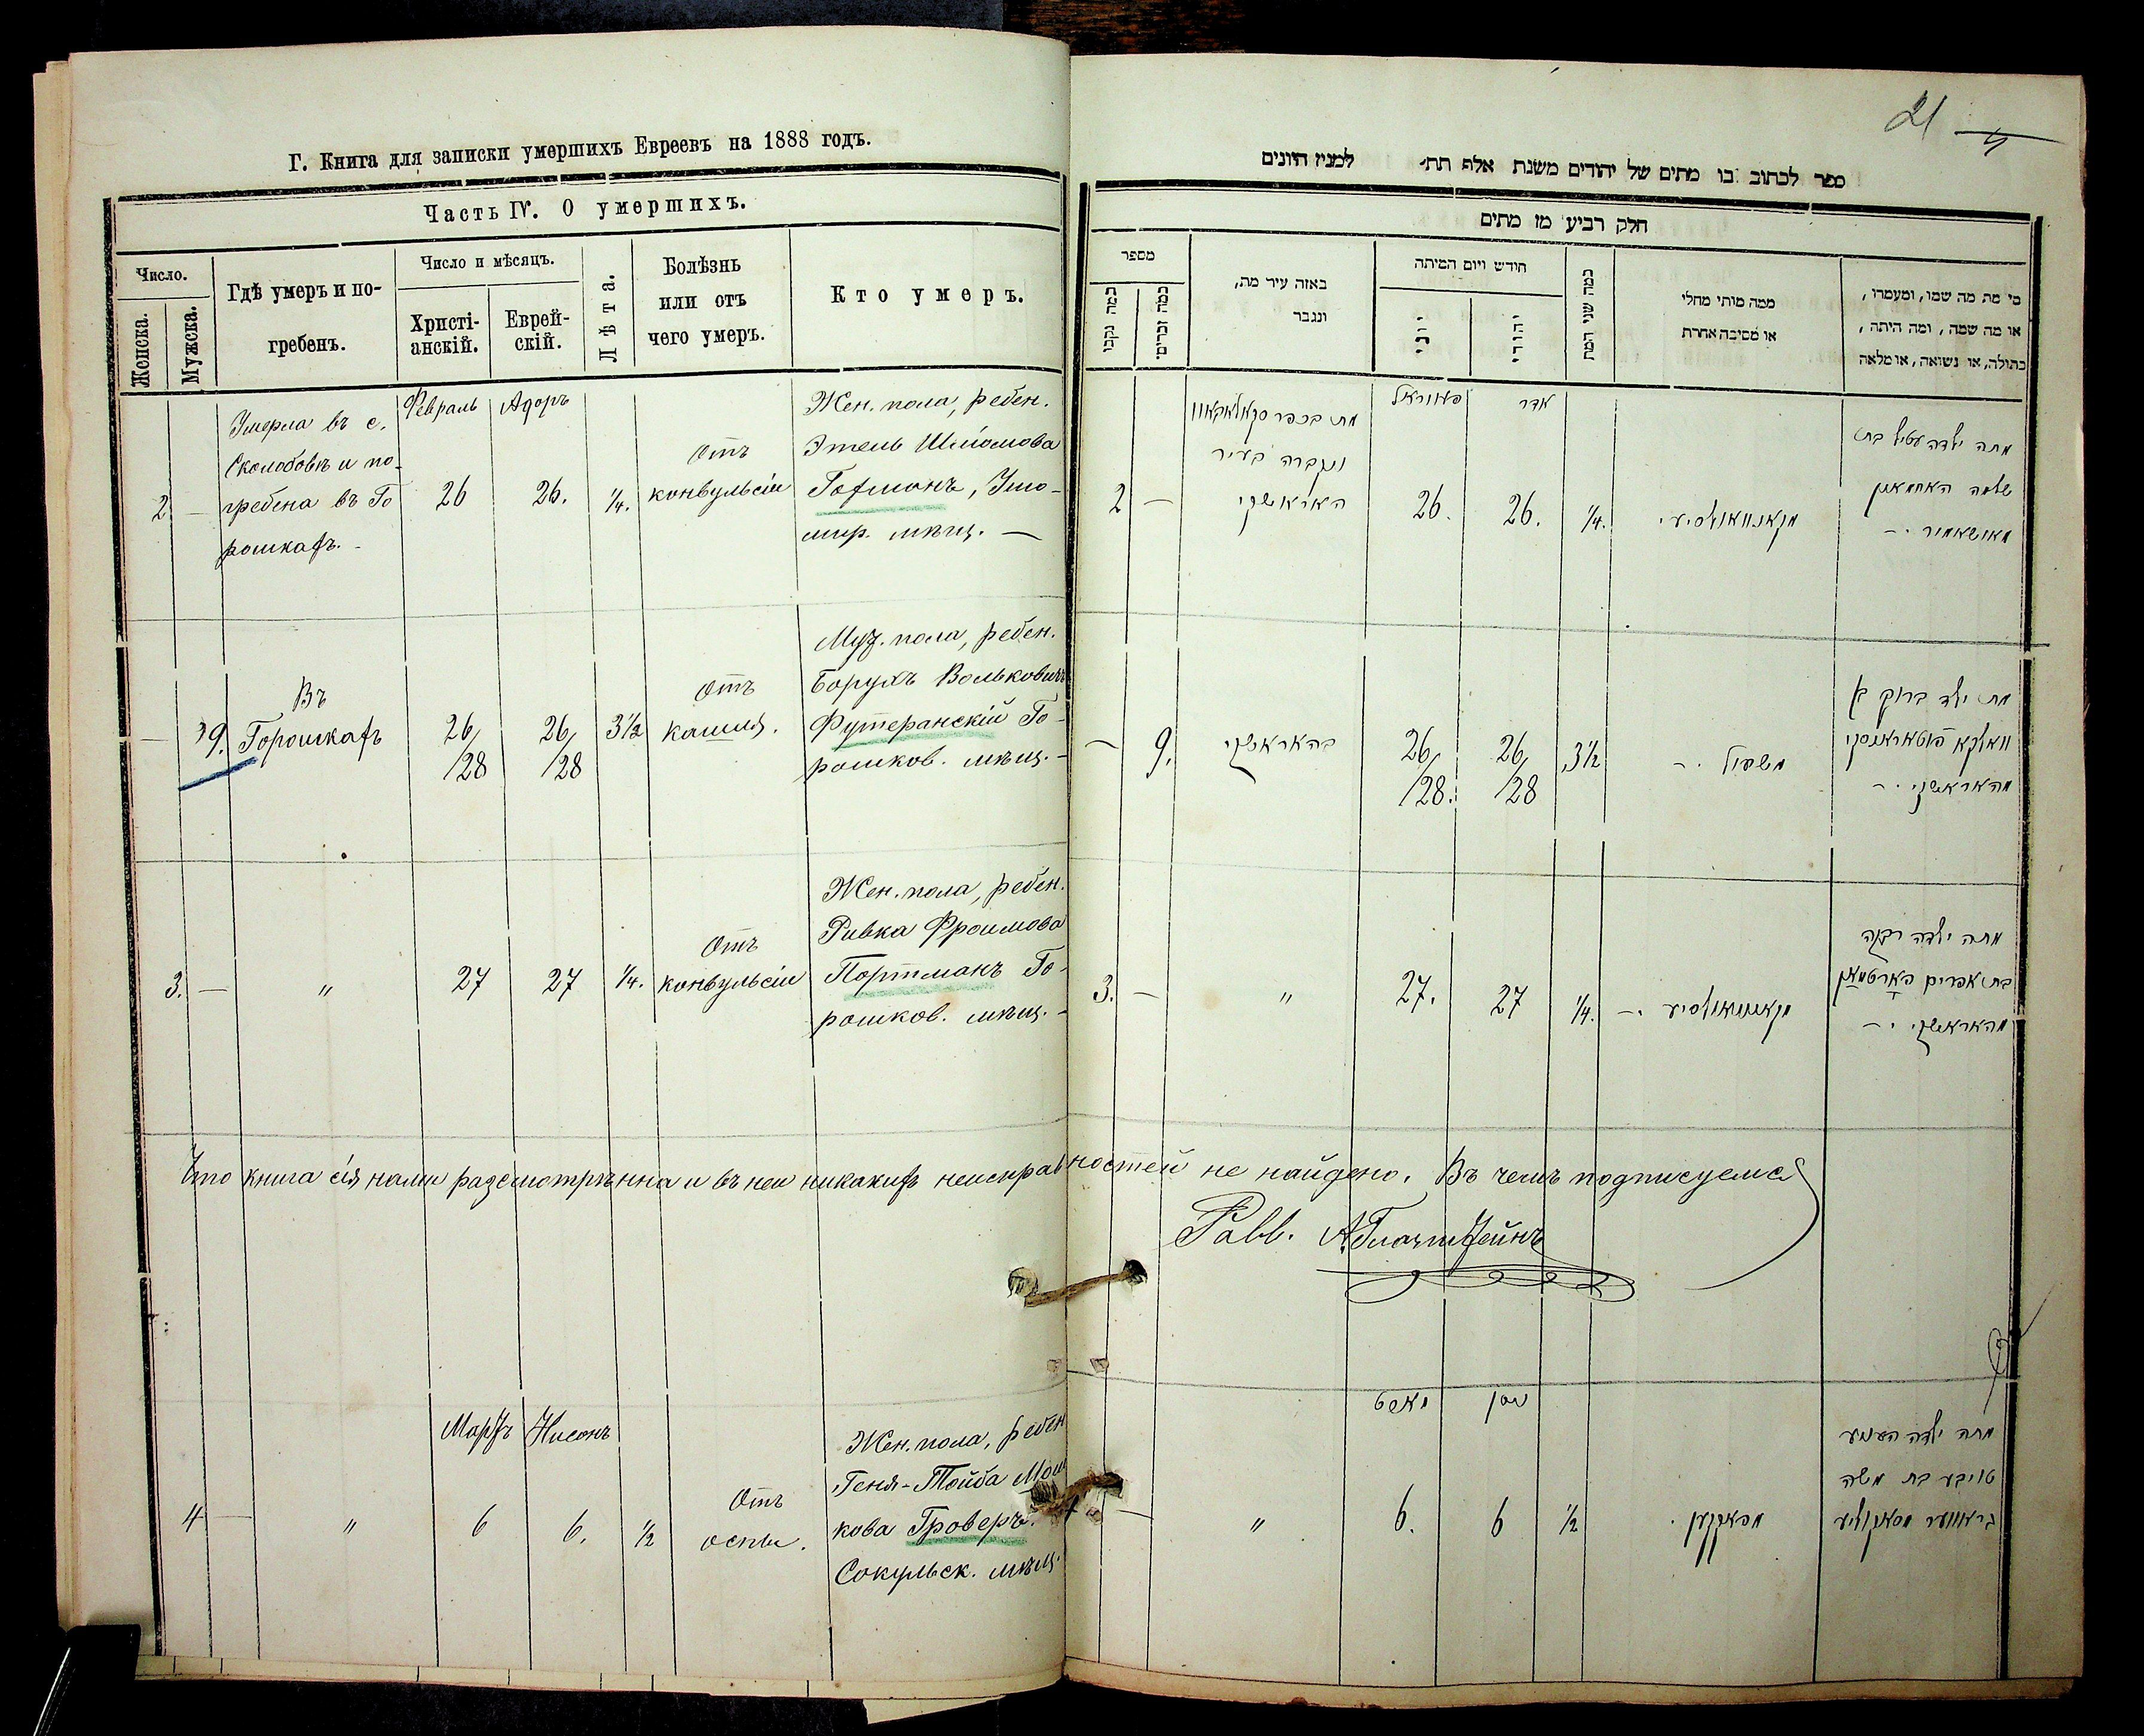 Г. Книга для записки умершихъ Евреевъ на 1888 годъ.
Часть IV. О умершихъ.
Число.
Женска.
Мужска.
Гдѣ умеръ и по-
гребенъ.
Число и мѣсяцъ.
Христі-
анскій.
Еврей-
скій.
Лѣта.
Болѣзнь
или отъ
чего умеръ.
Кто умеръ.
2 —
Умерла въ с.
Сколобовкѣ и по-
гребена въ Го
рошкахъ.
Февраль
26
Адоръ
26.
1/4.
отъ
конвульсіи
Жен. пола, ребен.
Этель Шліомова
Гохманъ, Ушо-
мир. мѣщ. —
— 9.
Въ
Горошкахъ
26/28
26/28
3 1/2
отъ
кашля.
Муж. пола, ребен.
Борухъ Вольковичъ
Футеранскій Го-
рошков. мѣщ. -
3. —
"
27
27
1/4.
отъ
конвульсіи
Жен. пола, ребен.
Ривка Фроимова
Портманъ Го-
рошков. мѣщ. -
Что книга сія нами разсмотрѣнна и въ ней никакихъ неисправностей не найдено. Въ чемъ подписуемся
Равв. А. Глазштейнъ
4 —
"
Мартъ
6
Нисонъ
6.
1/2
отъ
оспы.
Жен. пола, ребен
Геня-Тойба Мош
кова Гроверъ.
Сокульск. мѣщ.
21
ספר לכתוב בו מתים של יהודים משנת אלף תת׳ למנין היונים
חלק רביע מן מתים
מספר
כמה נקבו׳
כמה זכרים
באזה עיר מת,
ונגבר
חודש ויום המיתה
יוני
יהודי
כמה שני המת
ממה מותי מחלי
או מסיבה אחרת
מי מת מה שמו, ומעמדו,
או מה שמה, ומה היתה,
בתולה, או נשואה, או מלאה
2 —
מת בכפר סקאלאבאווקע
ונקברה בעיר
האראשקי
פאווראל
26.
אדר
26.
1/4.
מקאנוואולסיע
מתה ילדה עטיל בת
שלמה האחמאן
מאושאמיר
— 9.
בהאראשקי
26/28.
26/28
3 1/2
משעול
מת ילד ברוך ב
וואלקא פוטאראנסקי
מהאראשקי
3. —
"
27.
27
1/4.
מקאנוואולסיע
מתה ילדה רבקה
בת אפרים פארטמאן
מהאראשקי
—
"
מארט
6.
ניסן
6
1/2
מפאקען
מתה ילדה העניע
טויבע בת משה
גראווער מסאקולע